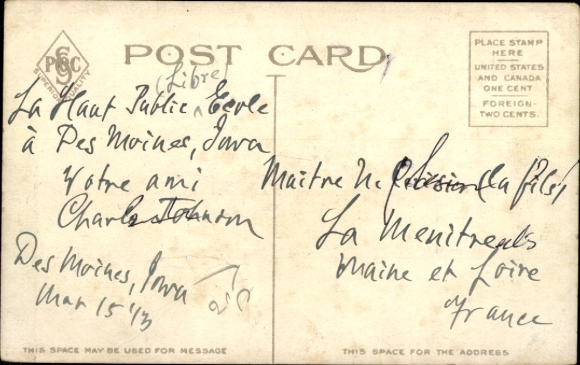 POST CARD
PLACE STAMP
HERE
UNITED STATES
AND CANADA
ONE CENT
FOREIGN-
TWO CENTS.
SUPERIOR QUALITY
(Libre
La Haut Public ^ Ecole
à Des Moines, Iowa
Votre ami
Charles Johnson
Des Moines, Iowa
Mar 15 '13
Maitre N.
La Menitre
Maine et Loire
France
THIS SPACE MAY BE USED FOR MESSAGE
THIS SPACE IS FOR THE ADDRESS